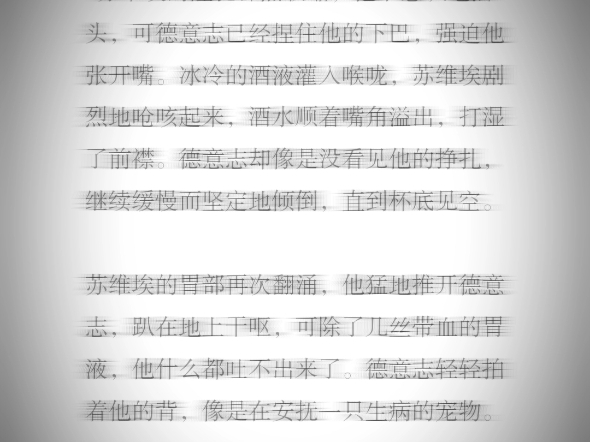 头，可德意志已经捏住他的下巴，强迫他
张开嘴。冰冷的酒液灌入喉咙，苏维埃剧
烈地呛咳起来，酒水顺着嘴角溢出，打湿
了前襟。德意志却像是没看见他的挣扎，
继续缓慢而坚定地倾倒，直到杯底见空。
苏维埃的胃部再次翻涌，他猛地推开德意
志，趴在地上干呕，可除了几丝带血的胃
液，他什么都吐不出来了。德意志轻轻拍
着他的背，像是在安抚一只生病的宠物。